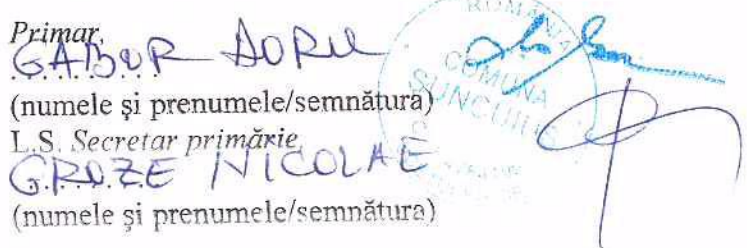 Primar,
GABOR DORU
(numele și prenumele/semnătura)
L.S. Secretar primărie,
GROZE NICOLAE
(numele și prenumele/semnătura)
ROMÂNIA
COMUNA
ȘUNCUIUȘ